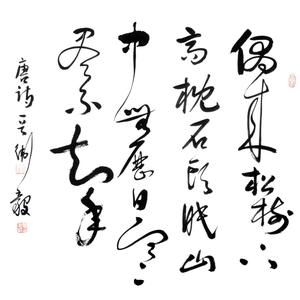 偶来松樹下
高枕石头眠山
中無歷日寒
尽不知年
唐诗
毅